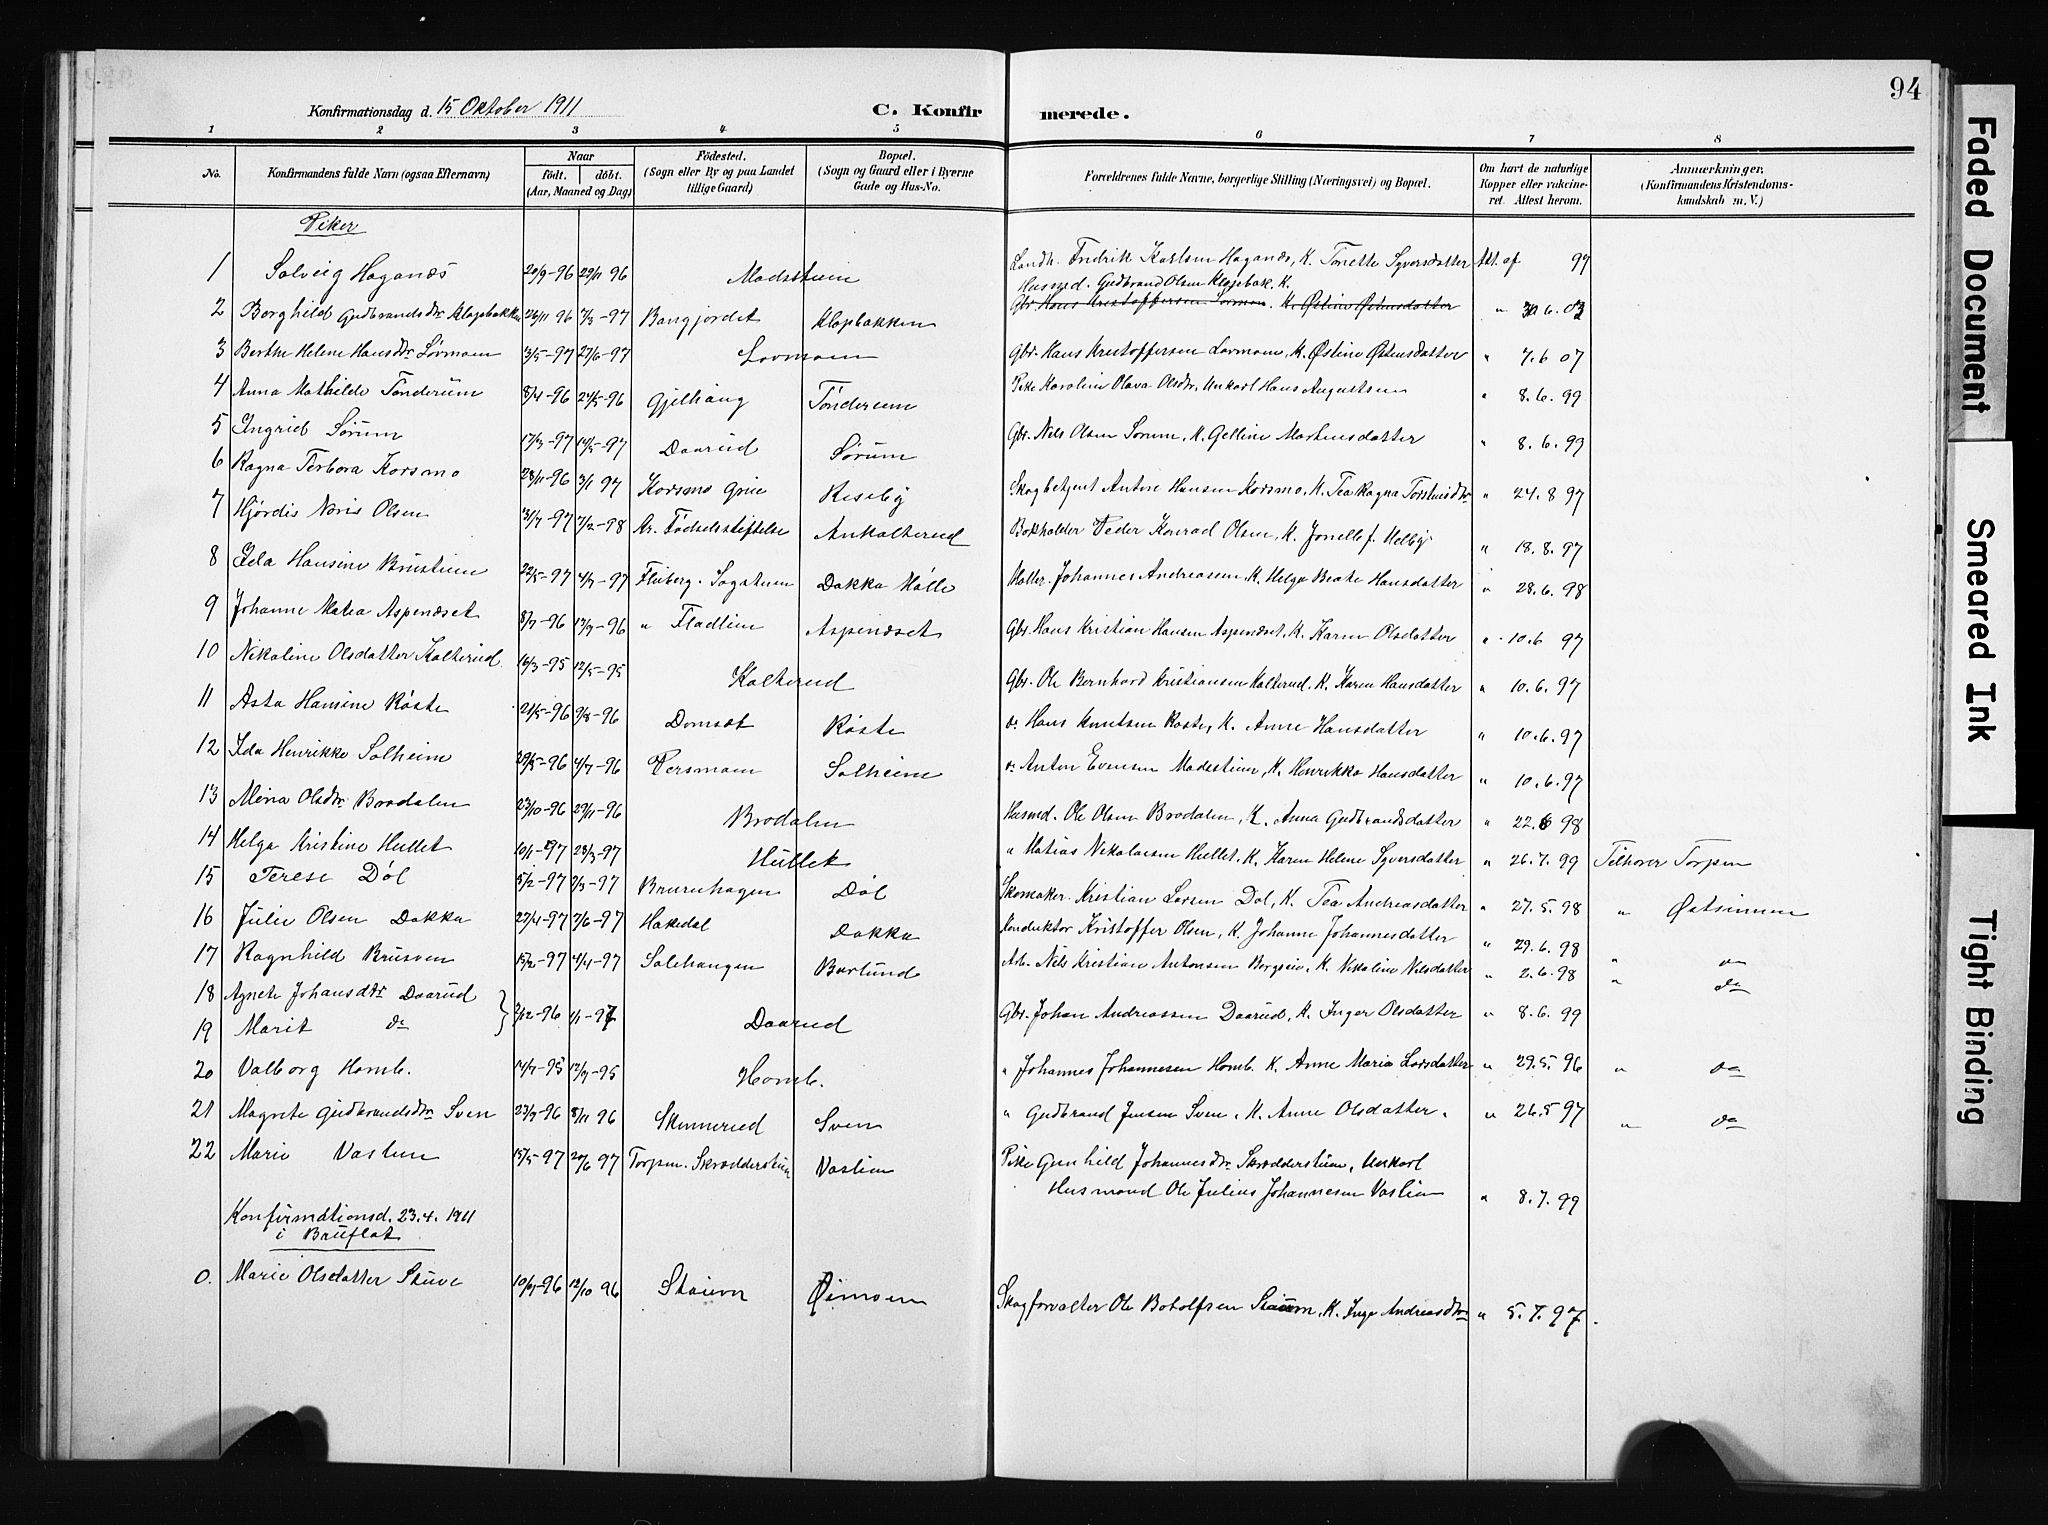 94
Konfirmationsdag d. 15 Oktober 1911
C. Konfirmerede.
1 2 3 4 5 6 7 8
No.
Konfirmandens fulde Navn (ogsaa Efternavn)
Naar
født. døbt.
(Aar, Maaned og Dag)
Fødested.
(Sogn eller By og paa Landet
tillige Gaard)
Bopæl.
(Sogn og Gaard eller i Byerne
Gade og Hus-No.
Forældrenes fulde Navne, borgerlige Stilling (Næringsvei) og Bopæl.
Om havt de naturlige
Kopper eller vakcine-
ret. Attest herom.
Anmærkninger.
(Konfirmandens Kristendoms-
kundskab m. V.)
Piker
1 Solveig Haganæs 20/9-96 29/11 96 Madsstuen Landh. Fredrik Karlsen Haganæs, K. Tonette Syversdatter Att. af 99
Husmd. Gudbrand Olsen Klopbak. K.
2 Borghild Gudbrandsdtr Klopbakken 26/11 96 7/3-97 Bangjordet Klopbakken Gbr. Hans Kristoffersen Lovmoen. K. Østine Østensdatter " 30.6.03
3 Berthe Helene Hansdtr Lovmoen 13/5-97 27/6-97 Lovmoen Gbr. Hans Kristoffersen Lovmoen, K. Østine Østensdatter " 7.6 07
4 Anna Mathilde Tønderum 8/4-96 24/5-96 Gjelhaug Tønderum Pike Karoline Olava Olsdtr, Unkarl Hans Augustsen " 8.6.99
5 Ingrid Sørum 17/3-97 14/5-97 Daarud Sørum Gbr. Nils Olsen Sørum, K. Gelline Martinsdatter " 8.6.99
6 Ragna Terbora Korsmo 23/11-96 3/1 97 Korsmo Grue Resaby Skogbetjent Antere Hansen Korsmo, K. Tea Ragna Torstensdtr " 24.8 97
7 Hjørdis Noris Olsen 13/7-97 7/2-98 Kr. Fødselsstiftelse Ankalterud Bokholder Peder Konrad Olsen, K. Jonelle f. Melby " 18.8.97
8 Ida Hansine Brustuen 22/5-97 4/7-97 Fluberg. Sagstuen Dokka Mølle Møller Johannes Andreassen, K. Helga Beate Hansdatter " 28.6.98
9 Johanne Matea Aspenæset 8/7-96 13/9-96 " Fladlien Aspenæset Gbr. Hans Kristian Hansen Aspenæset, K. Karen Olsdatter " 10.6 97
10 Nikoline Olsdatter Kalterud 16/3-95 12/5-95 Kalterud Gbr. Ole Bernhard Kristiansen Kalterud. K. Karen Hansdatter " 10.6.97
11 Asta Hansine Røste 21/5-96 9/8-96 Domsat Røste do Hans Knutsen Røste, K. Anne Hansdatter " 10.6.97
12 Ida Henrikke Solheim 29/5-96 4/7-96 Persmoen Solheim do Anton Evensen Madsstuen, K. Henrikke Hansdatter " 10.6.97
13 Mina Olsdtr Brodalen 23/10-96 29/11-96 Brodalen Husmd. Ole Olsen Brodalen, K. Anna Gudbrandsdatter " 22.6 98
14 Helga Kristine Hullet 10/1-97 28/3-97 Hullet " Matias Nikolaisen Hullet, K. Karen Helene Syversdatter " 26.7.99 Tilhører Torpen
15 Terese Døl 5/2-97 7/3-97 Bruruhagen Døl Skomaker Kristian Larsen Døl, K. Tea Andreasdatter " 27.5.98 " Østsinnen
16 Julie Olsen Dokka 27/4-97 7/6-97 Hakedal Dokka Konduktør Kristoffer Olsen, K. Johanne Johannesdatter " 29.6.98
17 Ragnhild Brusven 15/2-97 4/4-97 Solhaugen Borlund Arb. Nils Kristian Antonsen Borgseie, K. Nikoline Nilsdatter " 2.6.98 " do
18 Agnete Johansdtr Daarud " do
19 Marit do } 2/12-96 1/1-97 Daarud Gbr. Johan Andreassen Daarud, K. Inger Olsdatter " 8.6.99
20 Valborg Homb. 14/7-95 12/9-95 Homb. " Johannes Johannesen Homb. K. Anne Maria Larsdatter " 29.5.96 " do
21 Magnete Gudbrandsdtr Sven 23/9-96 8/11 96 Skinnerud Sven " Gudbrand Jensen Sven, K. Anne Olsdatter. " 26.5 97 " do
22 Marie Vaslien 15/5-97 20/6 97 Torpen. Skrædderstuen Vaslien Pike Gunhild Johannesdtr Skrædderstuen, Unkarl
Husmand Ole Julius Johannesen Vaslien " 8.7.99
Konfirmationsd. 23.4. 1911
i Bruflat
0. Marie Olsdatter Stuve 10/9-96 12/10 96 Øimoen Skogforvalter Ole Botolfsen, K. Inge Andreasdtr " 5.7.97.
Faded Document
Smeared Ink
Tight Binding